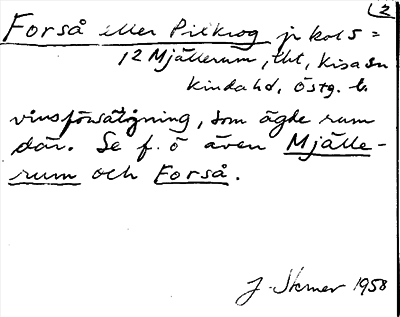 2
Forså eller Pilkrog jr kol 5 =
12 Mjällerum, tht, Kisa sn
Kinda hd, Östg. l.
vinsförsäljning, som ägde rum
där. Se f. ö även Mjälle-
rum och Forså.
J. Stemer 1958